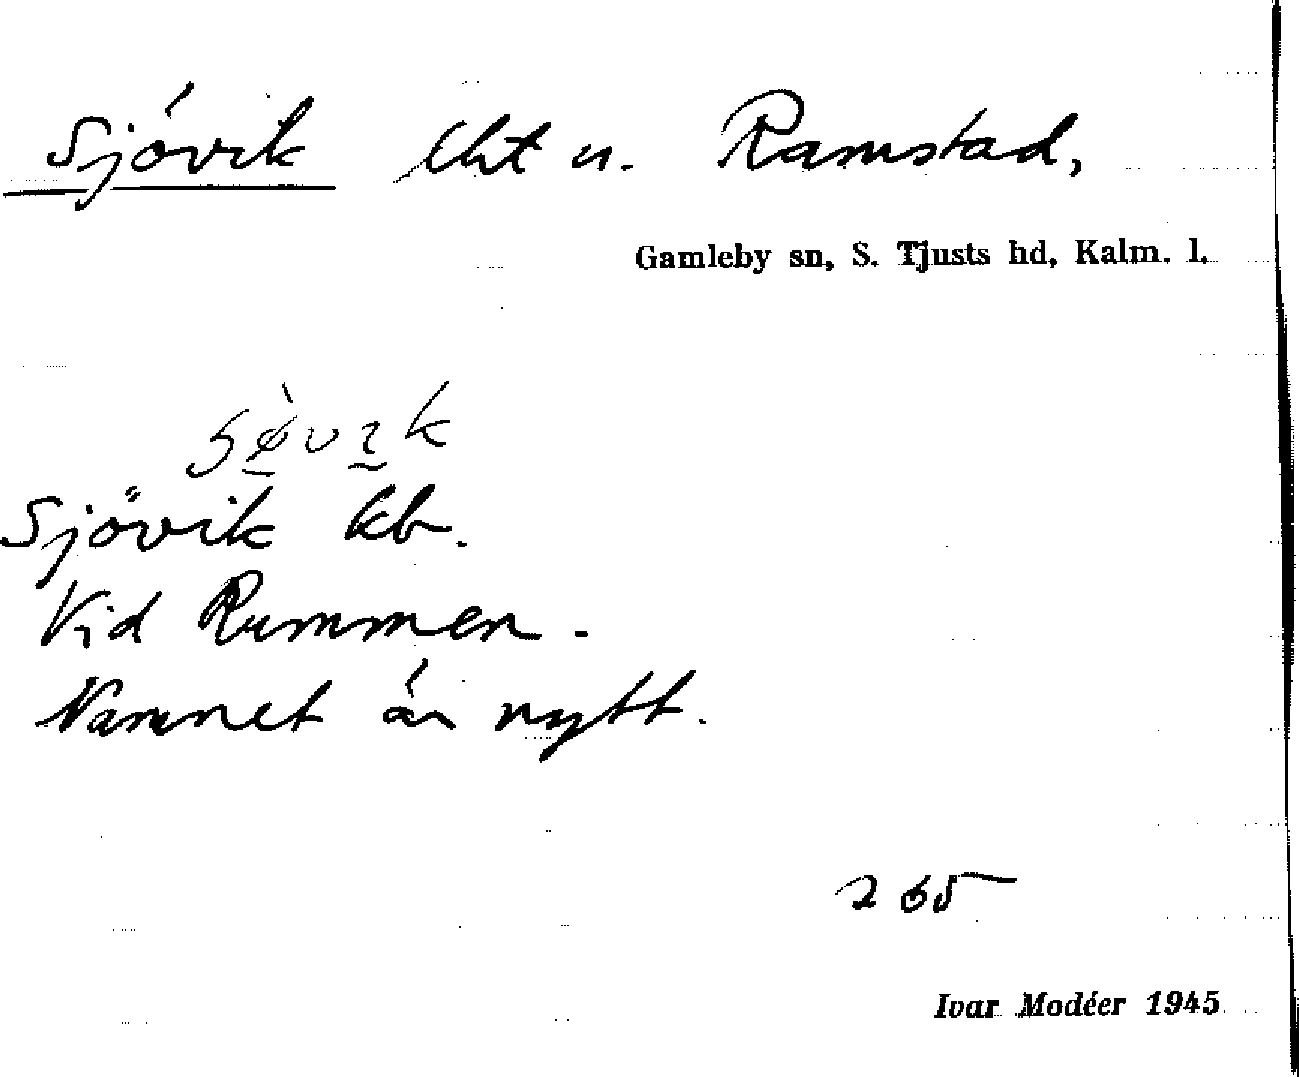 Sjövik lht u. Ramstad,
Gamleby sn, S. Tjusts hd, Kalm. l.
Sjövik kb.
Vid Rummen.
Namnet är nytt.
265
Ivar Modéer 1945